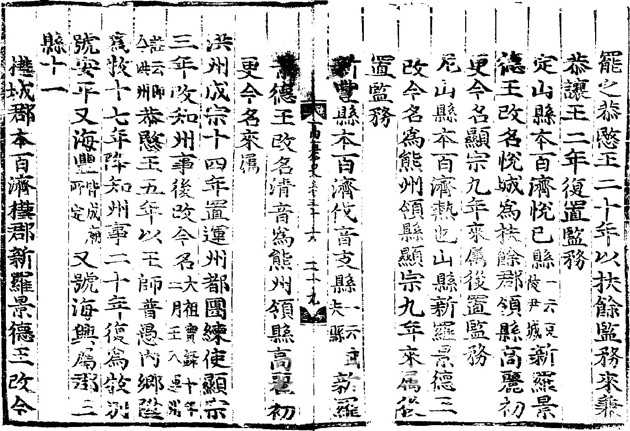 罷之恭愍王二十年以扶餘監務來兼
恭讓王二年復置監務
定山縣本百濟悅已縣一云豆陵尹城新羅景
德王改名悅城爲扶餘郡領縣高麗初
更今名顯宗九年來屬後置監務
尼山縣本百濟熱也山縣新羅景德王
改今名爲熊州領縣顯宗九年來屬後
置監務
新豐縣本百濟伐音支縣一云武夫縣新羅
景德王改名清音爲熊州領縣高麗初
更今名來屬
高麗史
洪州成宗十四年置運州都團練使顯宗
三年改知州事後改今名太祖實錄十年三月王入運州
註云卽今洪州恭愍王五年以王師普愚內鄉陞
爲牧十七年降知州事二十年復爲牧別
號安平又海豐皆成廟所定又號海興屬郡三
縣十一
槥城郡本百濟槥郡新羅景德王改今